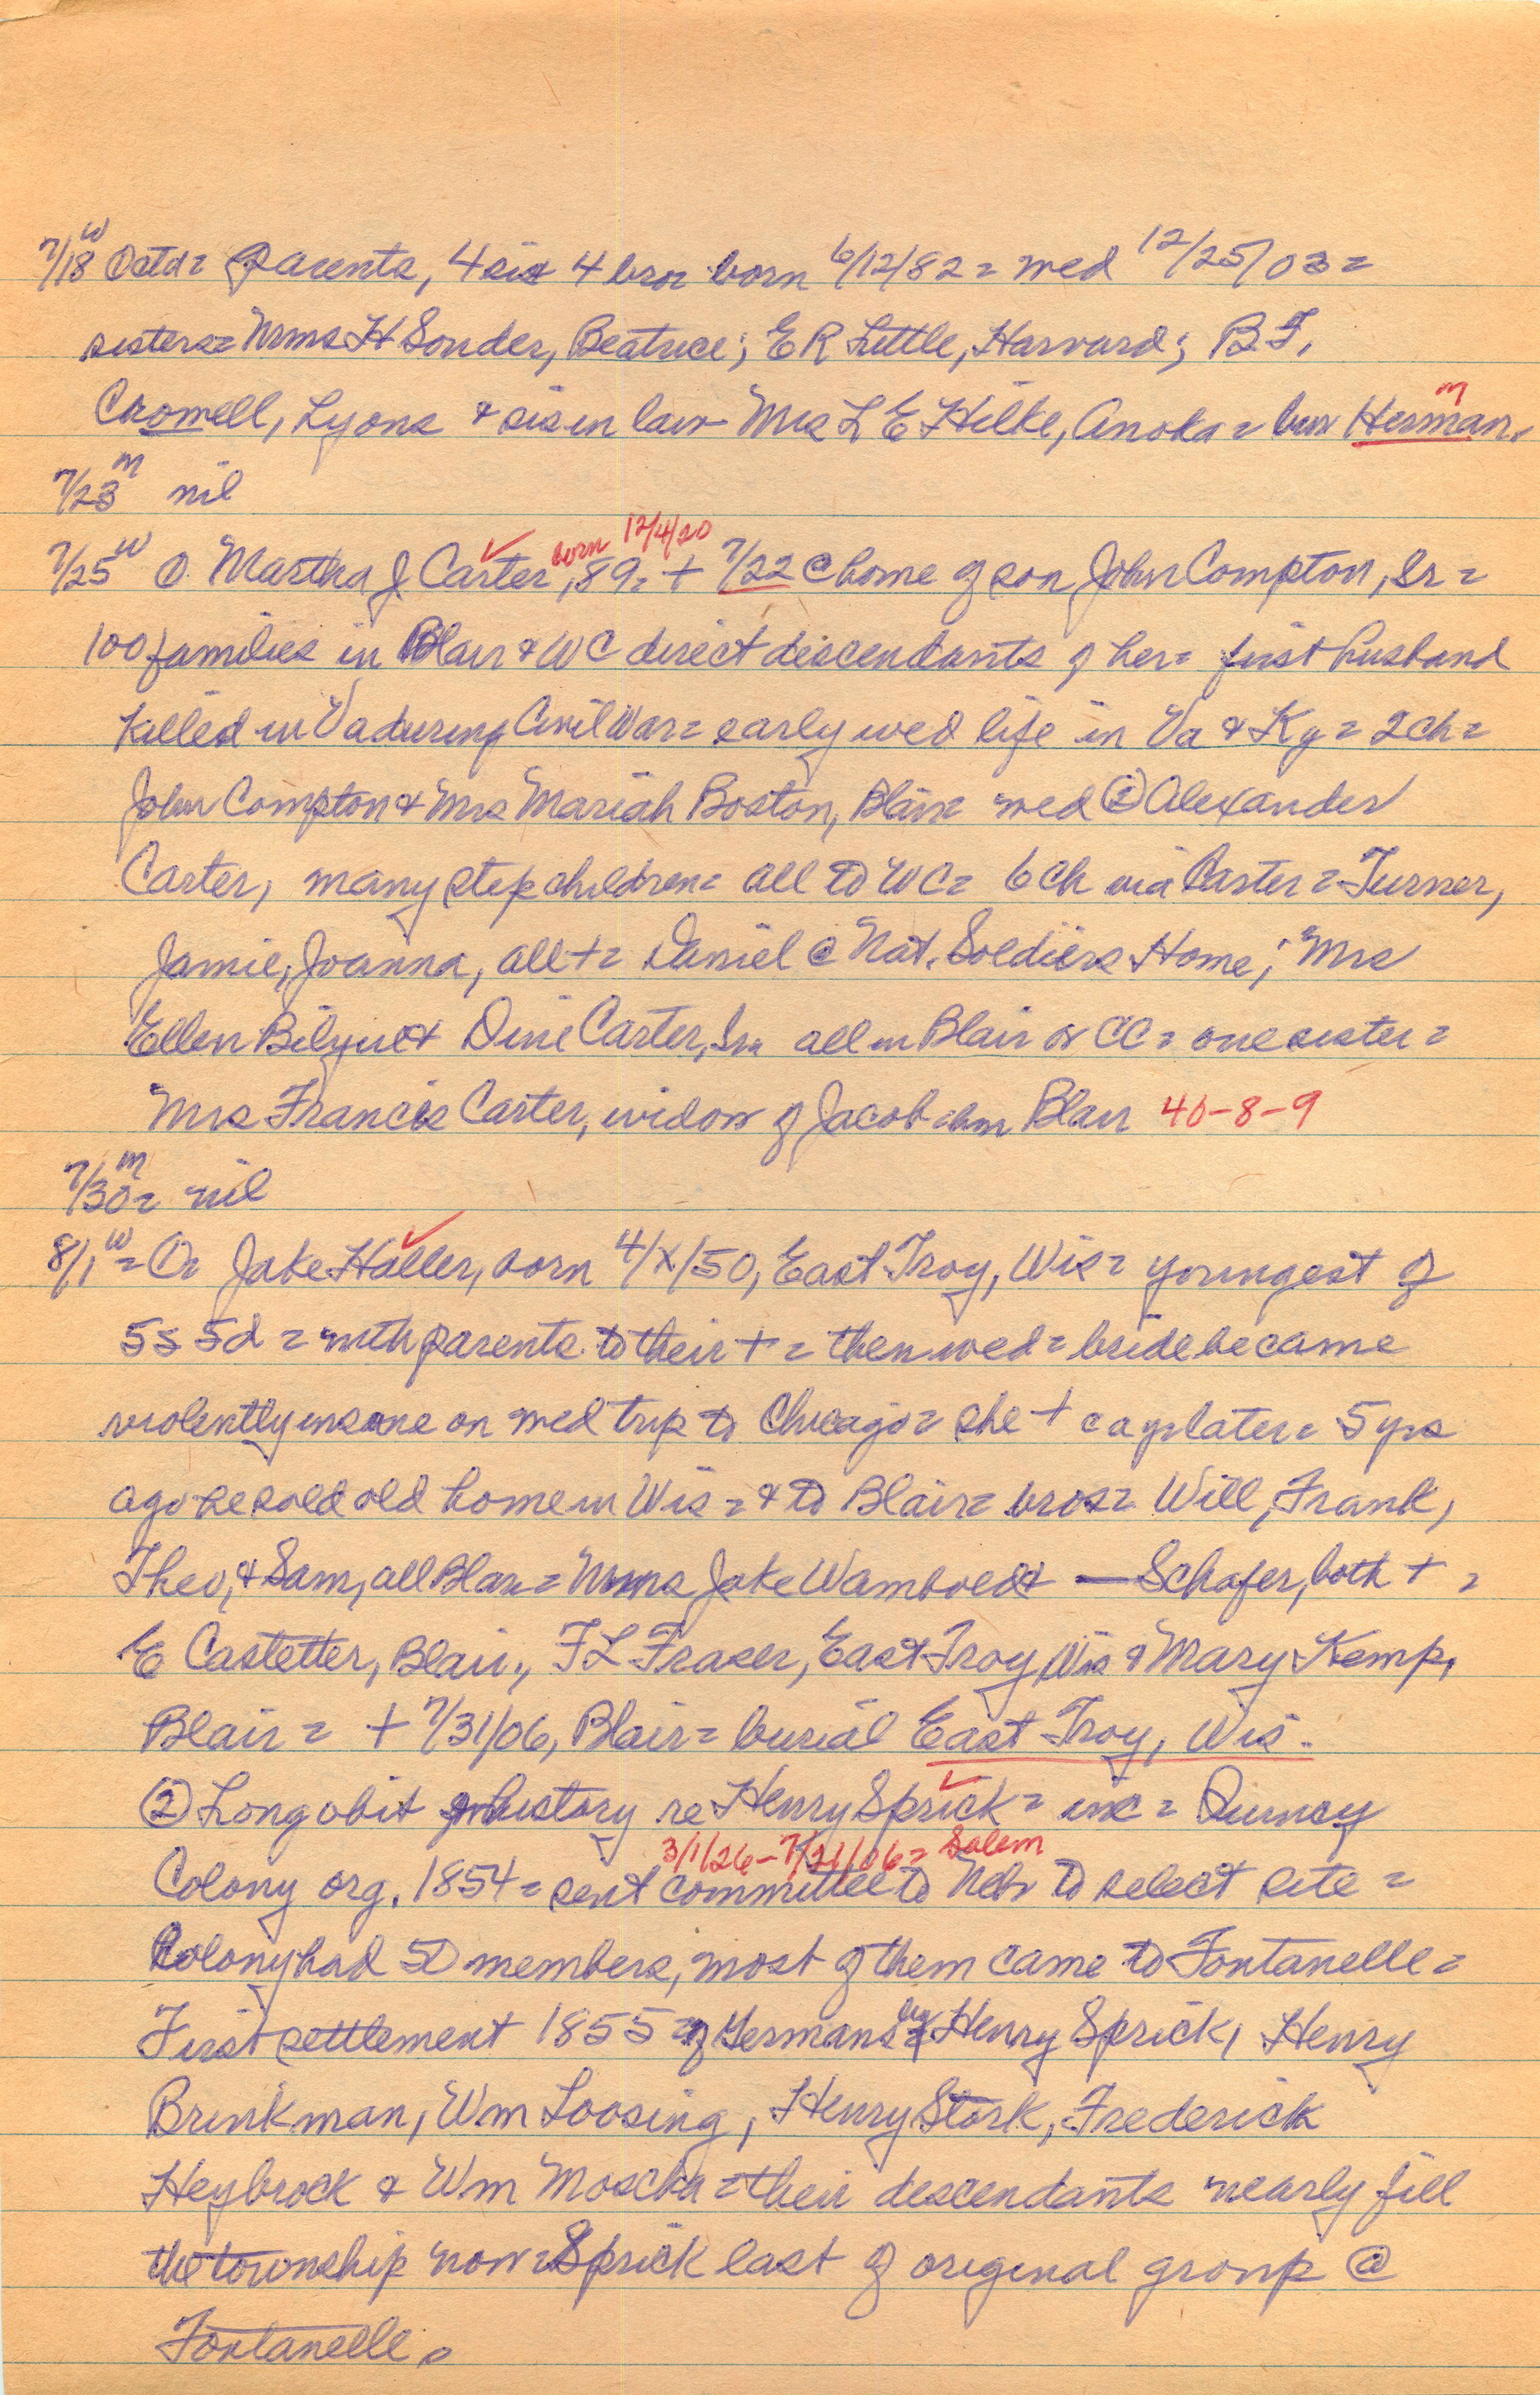 7/18 W Octd = parents, 4 sis 4 bro = born 6/12/82 = wed 12/25/03 =
sisters = Mmes H Sonder, Beatrice; E R Little, Harvard; B.F.
Cromwell, Lyons & sis in law Mrs L E Hilke, Anoka = bur Herman. m
7/23 m nil
7/25 W O. Martha J Carter, born 12/4/20 89 = + 7/22 @ home of son John Compton, Sr =
100 families in Blair & WC direct descendants of her = first husband
killed in Va during Civil War = early wed life in Va & Ky = 2 ch =
John Compton & Mrs Mariah Boston, Blair = wed ② Alexander
Carter, many step children = all to WC = 6 ch via Carter = Turner,
Jamie, Joanna, all + = Daniel @ Nat. Soldiers Home; Mrs
Ellen Bilyeu & Dine Carter, Sr. all in Blair or CC = one sister =
Mrs Francis Carter, widow of Jacob = bur Blair 40-8-9
7/30 m = nil
8/1 W = O = Jake Haller, born 4/X/50, East Troy, Wis = youngest of
5s 5d = with parents to their + = then wed = bride became
violently insane on wed trip to Chicago = she + c a yr later = 5 yrs
ago he sold old home in Wis = & to Blair = bros = Will, Frank,
Theo, & Sam, all Blair = Mmes Jake Wamboldt & — Schafer, both + =
E Castetter, Blair, F L Fraser, East Troy, Wis & Mary Kemp,
Blair = + 7/31/06, Blair = burial East Troy, Wis.
② Long obit & history re Henry Sprick = inc = Quincy
3/1/26 - 7/21/06 = Salem
Colony org. 1854 = sent committee to Neb to select site =
Colony had 50 members, most of them came to Fontanelle =
First settlement 1855 of Germans by Henry Sprick, Henry
Brinkman, Wm Loosing, Henry Stork, Frederick
Heybrock & Wm Moscha = their descendants nearly fill
the township now = Sprick last of original group @
Fontanelle.